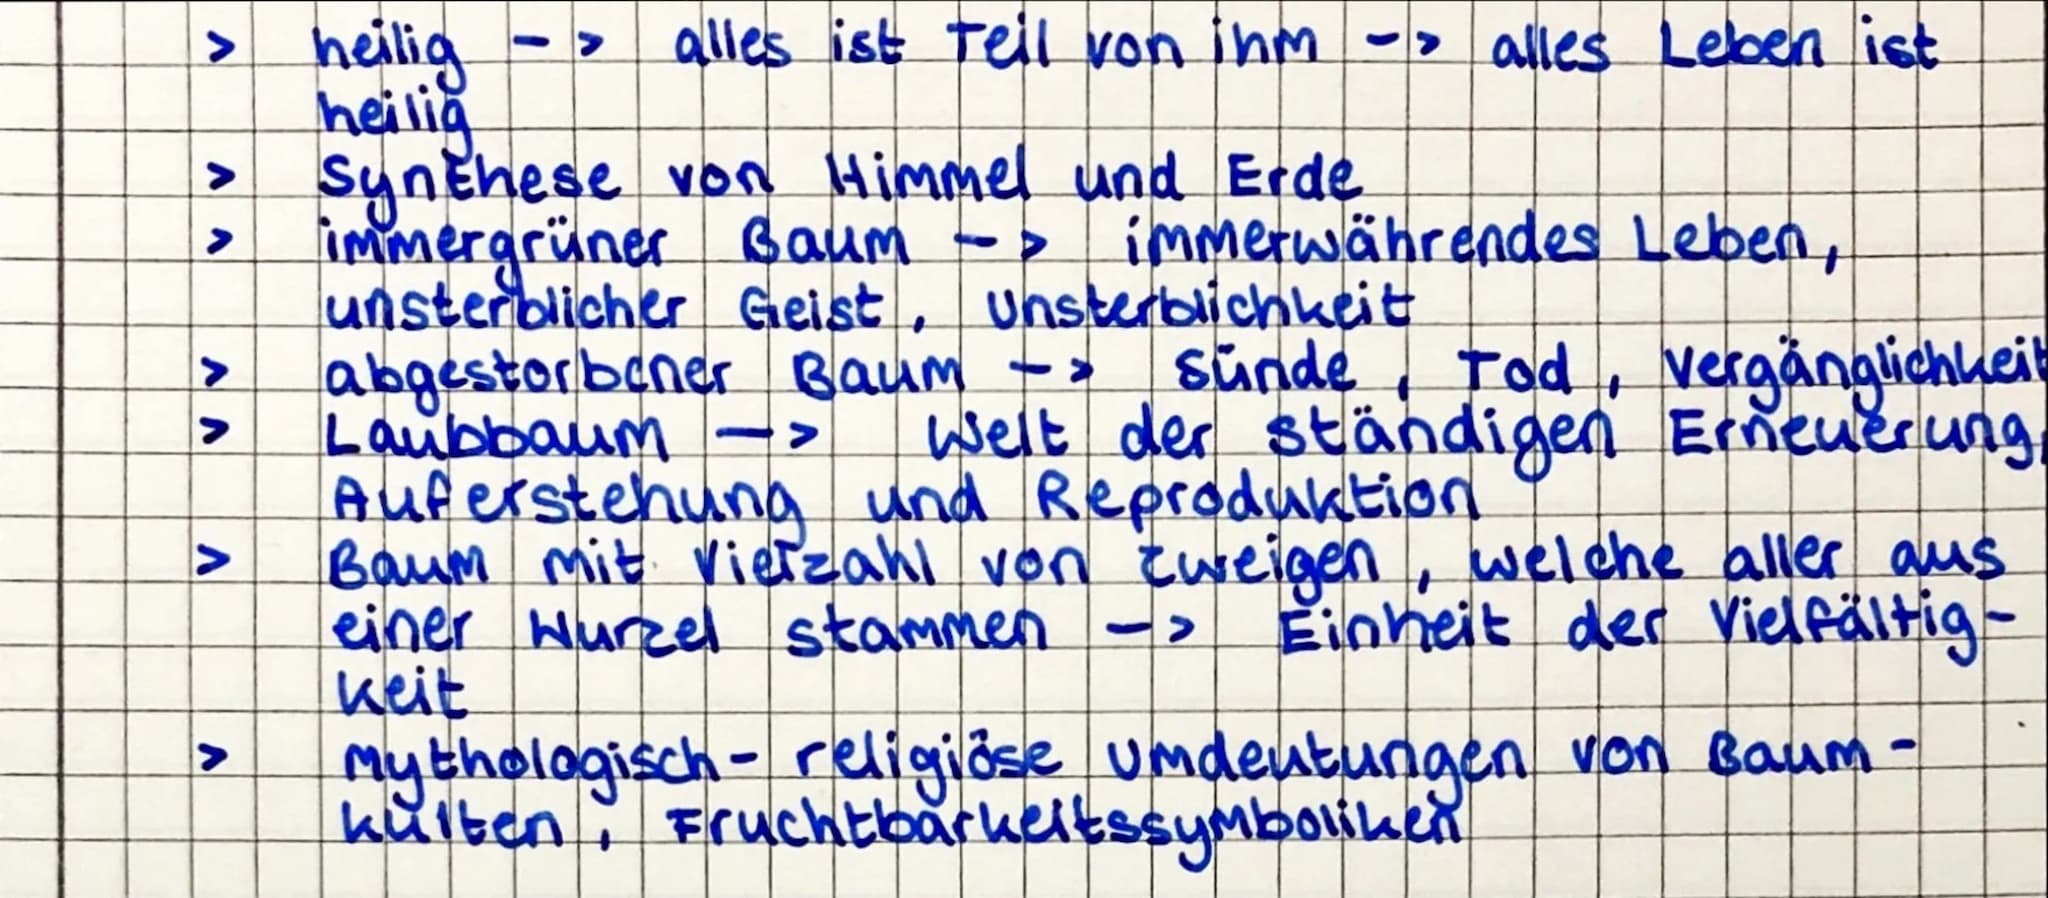 > heilig -> alles ist Teil von ihm -> alles Leben ist
heilig
> Synthese von Himmel und Erde
> immergrüner Baum -> immerwährendes Leben,
unsterblicher Geist, Unsterblichkeit
> abgestorbener Baum -> Sünde, Tod, Vergänglichkeit
> Laubbaum -> Welt der ständigen Erneuerung,
Auferstehung und Reproduktion
> Baum mit Vielzahl von Zweigen, welche aller aus
einer Wurzel stammen -> Einheit der Vielfältig-
keit
> mythologisch-religiöse Umdeutungen von Baum-
kulten, Fruchtbarkeitssymboliken